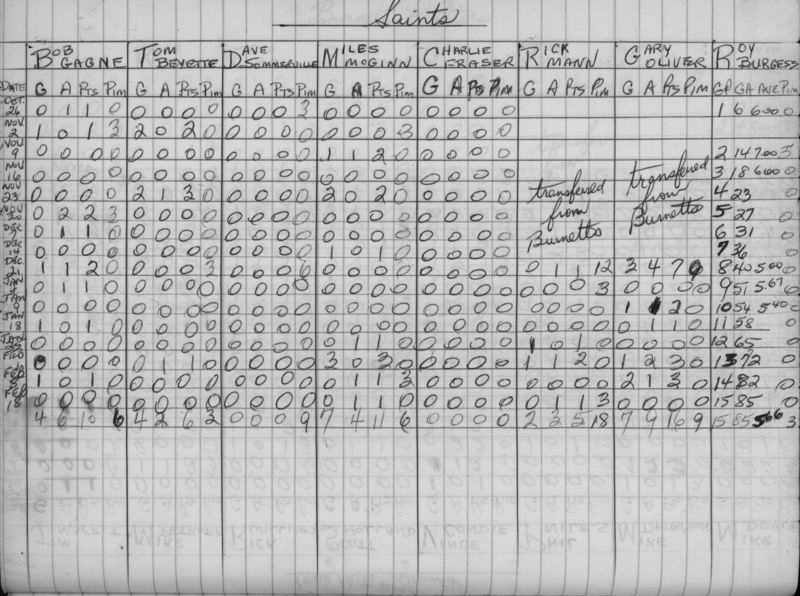 Saints
BOB GAGNE TOM BEYETTE DAVE SOMMERVILLE MILES MCGINN CHARLIE FRASER RICK MANN GARY OLIVER ROY BURGESS
DATE G A PTS PIM G A PTS PIM G A PTS PIM G A PTS PIM G A PTS PIM G A PTS PIM G A PTS PIM GP GA AVE PIM
OCT 26 0 1 1 0 0 0 0 0 0 0 0 3 0 0 0 0 0 0 0 0 1 6 6.00 0
NOV 2 1 0 1 3 2 0 2 0 0 0 0 0 0 0 0 3 0 0 0 0
NOV 9 0 0 0 0 0 0 0 0 0 0 0 0 1 1 2 0 0 0 0 0 2 14 7.00 3
NOV 16 0 0 0 0 0 0 0 0 0 0 0 0 0 0 0 0 0 0 0 0 3 18 6.00 0
NOV 23 0 0 0 0 2 1 3 0 0 0 0 0 2 0 2 0 0 0 0 0 transferred from Burnetts transferred from Burnetts 4 23 0
NOV 30 0 2 2 3 0 0 0 0 0 0 0 0 0 0 0 0 0 0 0 0 5 27 0
DEC 0 1 1 0 0 0 0 0 0 0 0 0 0 0 0 0 0 0 0 0 6 31 0
DEC 14 0 0 0 0 0 0 0 0 0 0 0 0 1 0 1 0 0 0 0 0 7 36 0
DEC 21 1 1 2 0 0 0 0 3 0 0 0 6 0 0 0 0 0 0 0 0 0 1 1 12 3 4 7 8 40 5.00 0
JAN 0 1 1 0 0 0 0 0 0 0 0 0 0 0 0 0 0 0 0 0 0 0 0 3 0 0 0 0 9 51 5.67 0
JAN 9 0 0 0 0 0 0 0 0 0 0 0 0 0 0 0 0 0 0 0 0 0 0 0 0 1 1 2 0 10 54 5.40 0
JAN 18 1 0 1 0 0 0 0 0 0 0 0 0 0 0 0 0 0 0 0 0 0 0 0 0 0 1 1 0 11 58 0
JAN 0 0 0 0 0 0 0 0 0 0 0 0 0 1 1 0 0 0 0 0 1 0 1 0 0 0 0 0 12 65 0
FEB 0 0 0 0 0 1 1 0 0 0 0 0 3 0 3 0 0 0 0 0 1 1 2 0 1 2 3 0 13 72 0
FEB 8 1 0 1 0 0 0 0 0 0 0 0 0 0 1 1 3 0 0 0 0 0 0 0 0 2 1 3 0 14 82 0
FEB 18 0 0 0 0 0 0 0 0 0 0 0 0 0 1 1 0 0 0 0 0 0 1 1 3 0 0 0 0 15 85 0
4 6 10 6 4 2 6 3 0 0 0 9 7 4 11 6 0 0 0 0 2 3 5 18 7 9 16 9 15 85 5.66 3